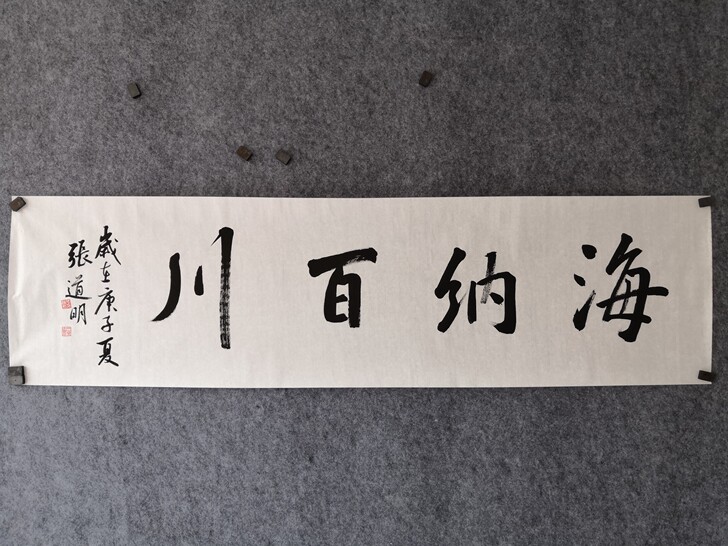 海纳百川
歲在庚子夏
張道明